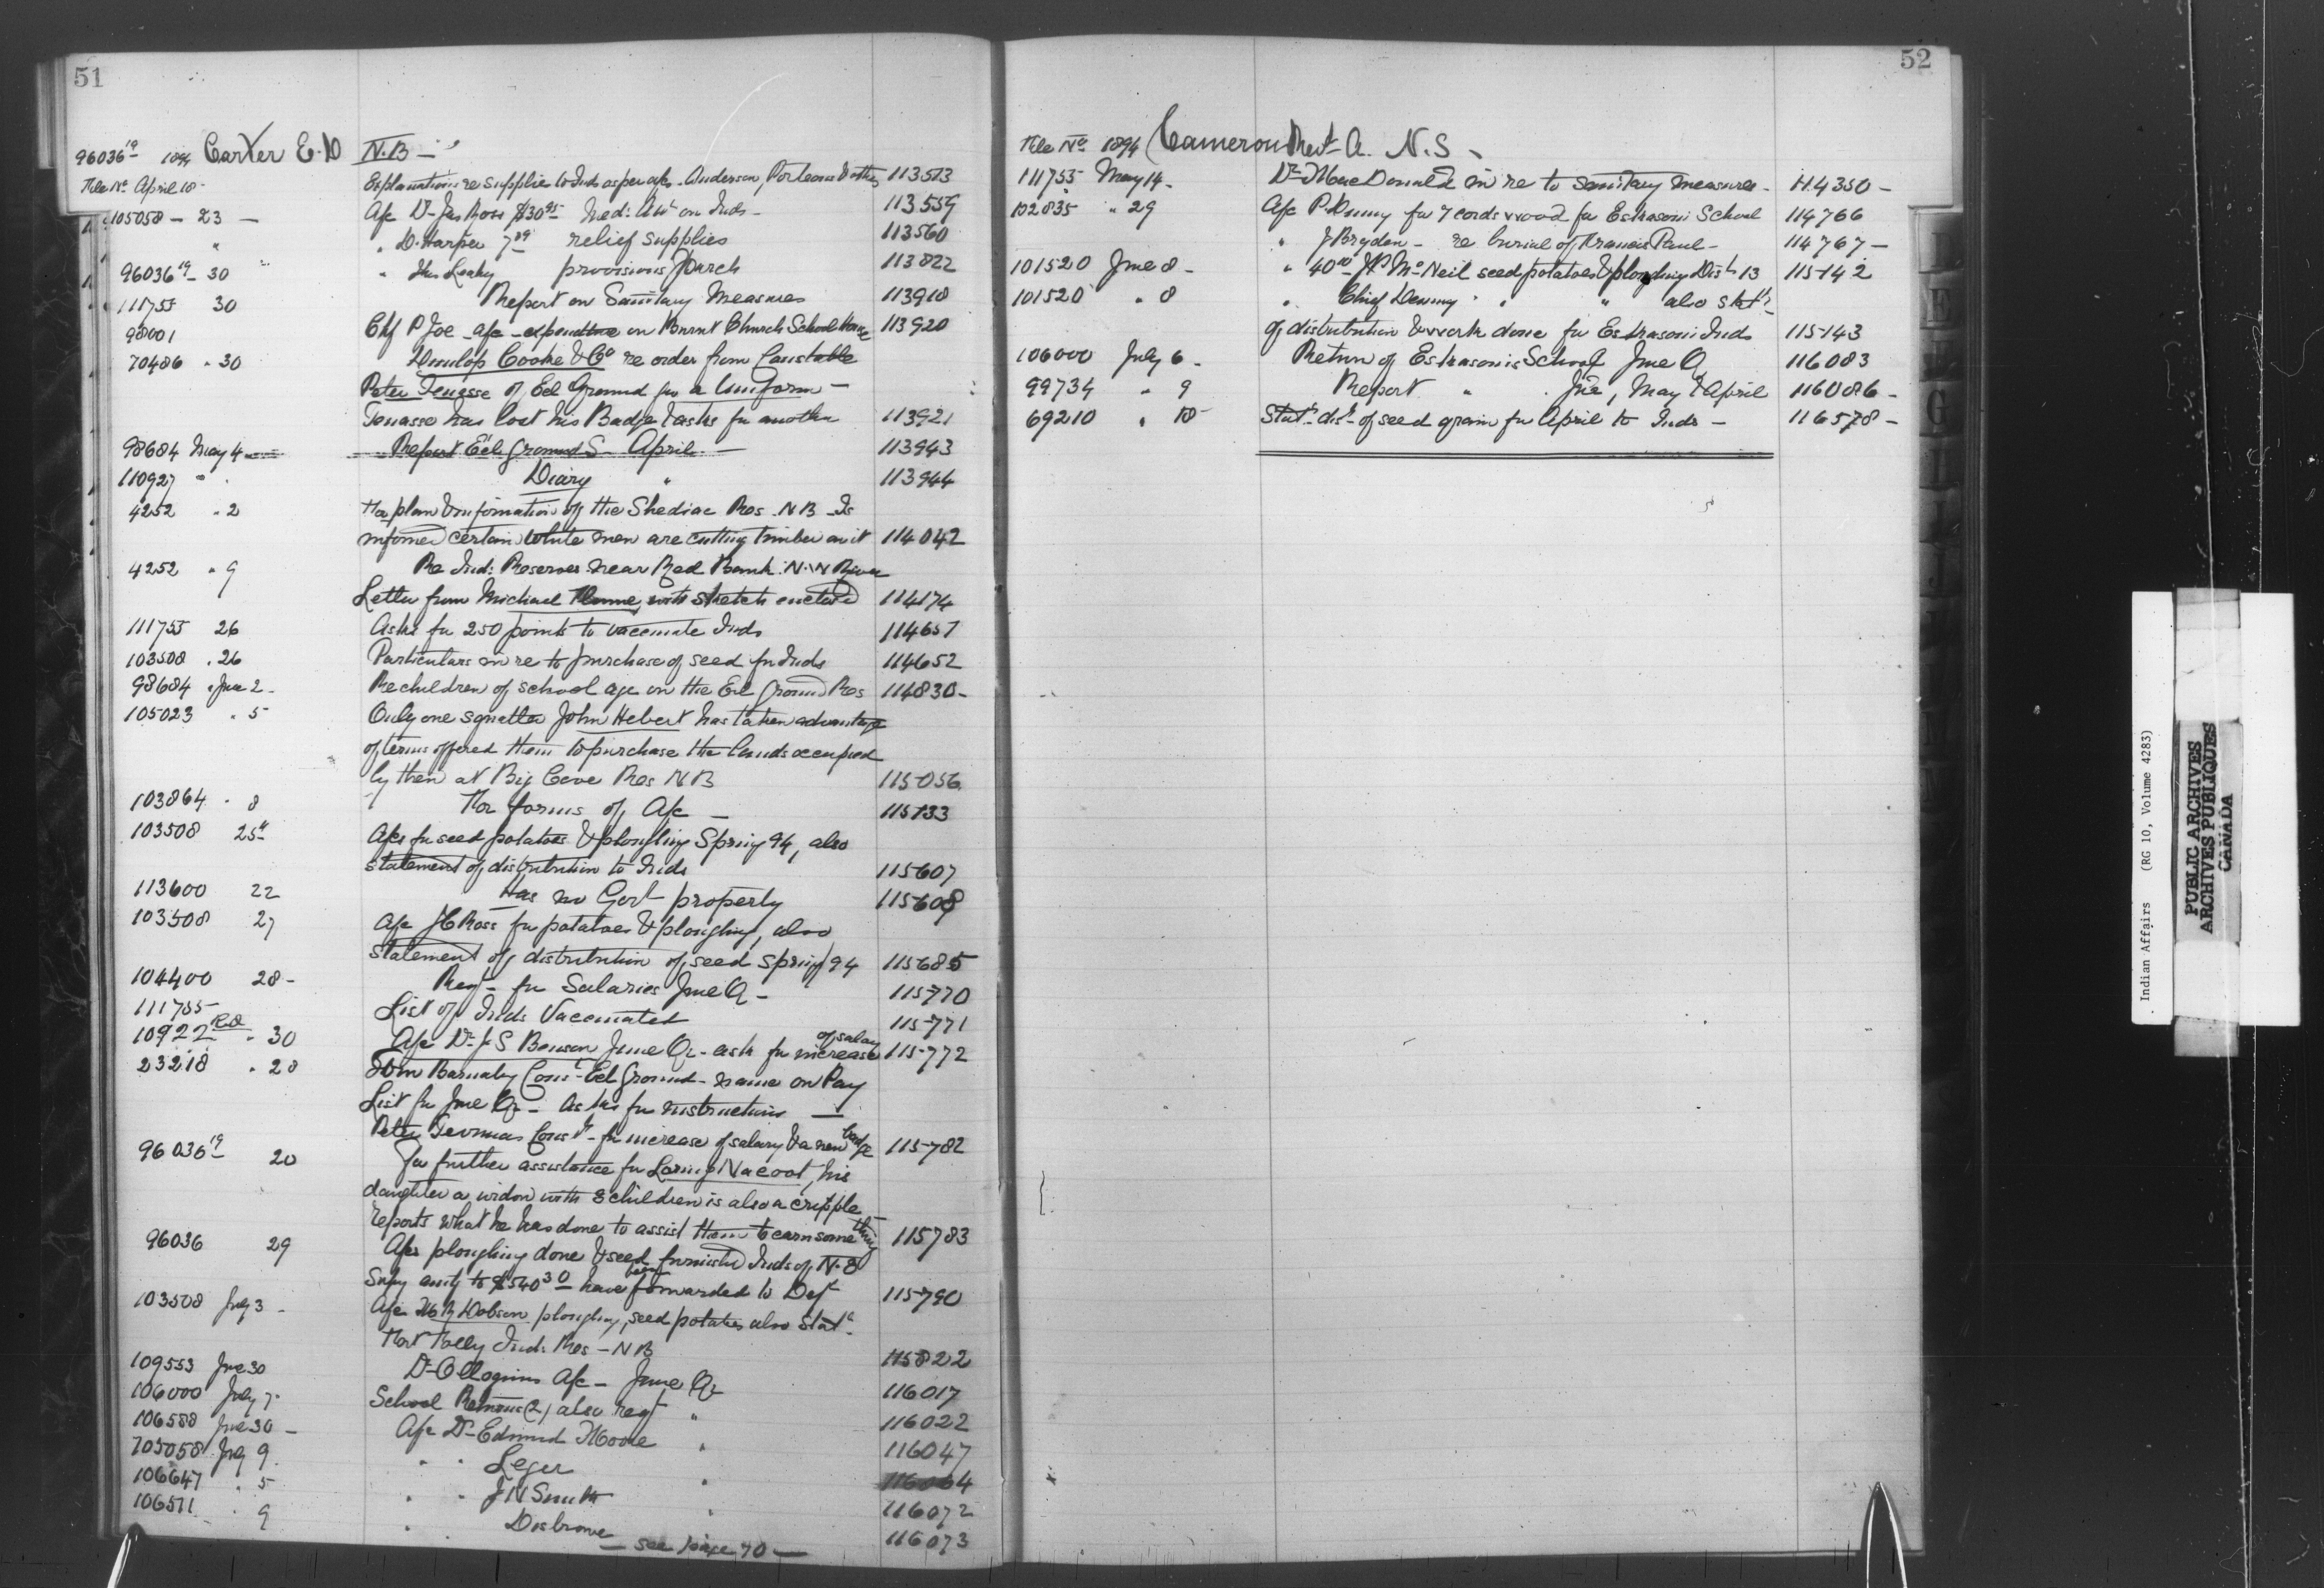 51
96036 19 1894 Carter E. D N.B —
File No April 18 - Explanation re supplies to Inds as per a/cs. Anderson, Porteous & others 113513
105058 — 23 — A/c Dr Jas Ross $30 95 Med: Att on Inds - 113559
" " D. Harper 7 89 relief supplies 113560
96036 19 - 30 " Leahy provisions March 113822
111755 30 Report on Sanitary Measures 113918
98001 Chf P Joe - a/c - expenditure on Burnt Church School House 113920
70486 " 30 Dunlop Cooke & Co re order from Constable
Peter Tenasse of Eel Ground for a Uniform —
Tenasse has lost his Badge & asks for another 113921
98684 May 4 — Report Eel Ground S - April. — 113943
110927 " " Diary " 113944
4252 " 2 For plan & information of the Shediac Res. N B - Is
informed certain white men are cutting timber on it 114042
4252 " 9 Re Ind: Reserves near Red Bank. N.W River
Letter from Michael with sketch enclosed 114174
111755 26 Asks for 250 points to vaccinate Inds 114651
103508 " 26 Particulars in re to purchase of seed for Inds 114652
98684 " June 2 - Re children of school age on the Eel Ground Res 114830 -
105023 " 5 Only one squatter John Hebert has taken advantage
of terms offered them to purchase the lands occupied
by them at Big Cove Res N B 115056
103864 " 8 For forms of A/c — 115133
103508 25th A/cs for seed potatoes & ploughing Spring 94, also
statement of distribution to Inds 115607
113600 22 Has no Govt property 115608
103508 27 A/c J C Ross for potatoes & ploughing, also
Statement of distribution of seed spring 94 115685
104400 28 - Reqt - for Salaries June Q - 115770
111755 List of Inds Vaccinated 115771
10922 " 30 A/c Dr J. S Benson June Qr - asks for increase of salary 115772
23218 " 28 Tom Barnaby Const - Eel Ground - name on Pay
List for June Qr - Asks for instructions —
Peter Const - for increase of salary & a new badge 115782
96036 19 20 For further assistance for his
daughter a widow with 8 children is also a cripple -
reports what he has done to assist them to earn something 115783
96036 29 A/cs ploughing done & seed furnished Inds of N. E
Supy amtg to $540 30 have been forwarded to Dept 115790
103508 July 3 - A/c Dobson ploughing, seed potatoes also Statt
Fort Folly Inds Res - N B 115822
109553 June 30 Dr A/c - June Qr 116017
106000 July 7 School Returns (2) also reqt " 116022
106588 June 30 — A/c Dr Edmund Moore " 116047
105058 July 9 " " Leger 116064
106647 " 5 " " J N Smith " 116072
106511 " 9 " " Disbrowe " 116073
— see page 70 —
52
File No 1894 Cameron Revt A. N. S -
111755 May 14 - Dr MacDonald in re to sanitary measures - 114350 -
102835 " 29 A/c P. Denny for 7 cords wood for Eskasoni School 114766
" J Bryden - re burial of Francis Paul - 114767 —
101520 June 8 - " 40 00 J P McNeil seed potatoes & ploughing Dist 13 115142
101520 " 8 " Chief Denny " " " also statt
of distribution & work done for Eskasoni Inds 115143
106000 July 6 - Return of Eskasonis School June Q 116083
99734 " 9 Report " June, May & April 116086 -
69210 " 18 Statt dist - of seed grain for April to Inds - 116578 -
Indian Affairs (RG 10, Volume 4283)
PUBLIC ARCHIVES
ARCHIVES PUBLIQUES
CANADA